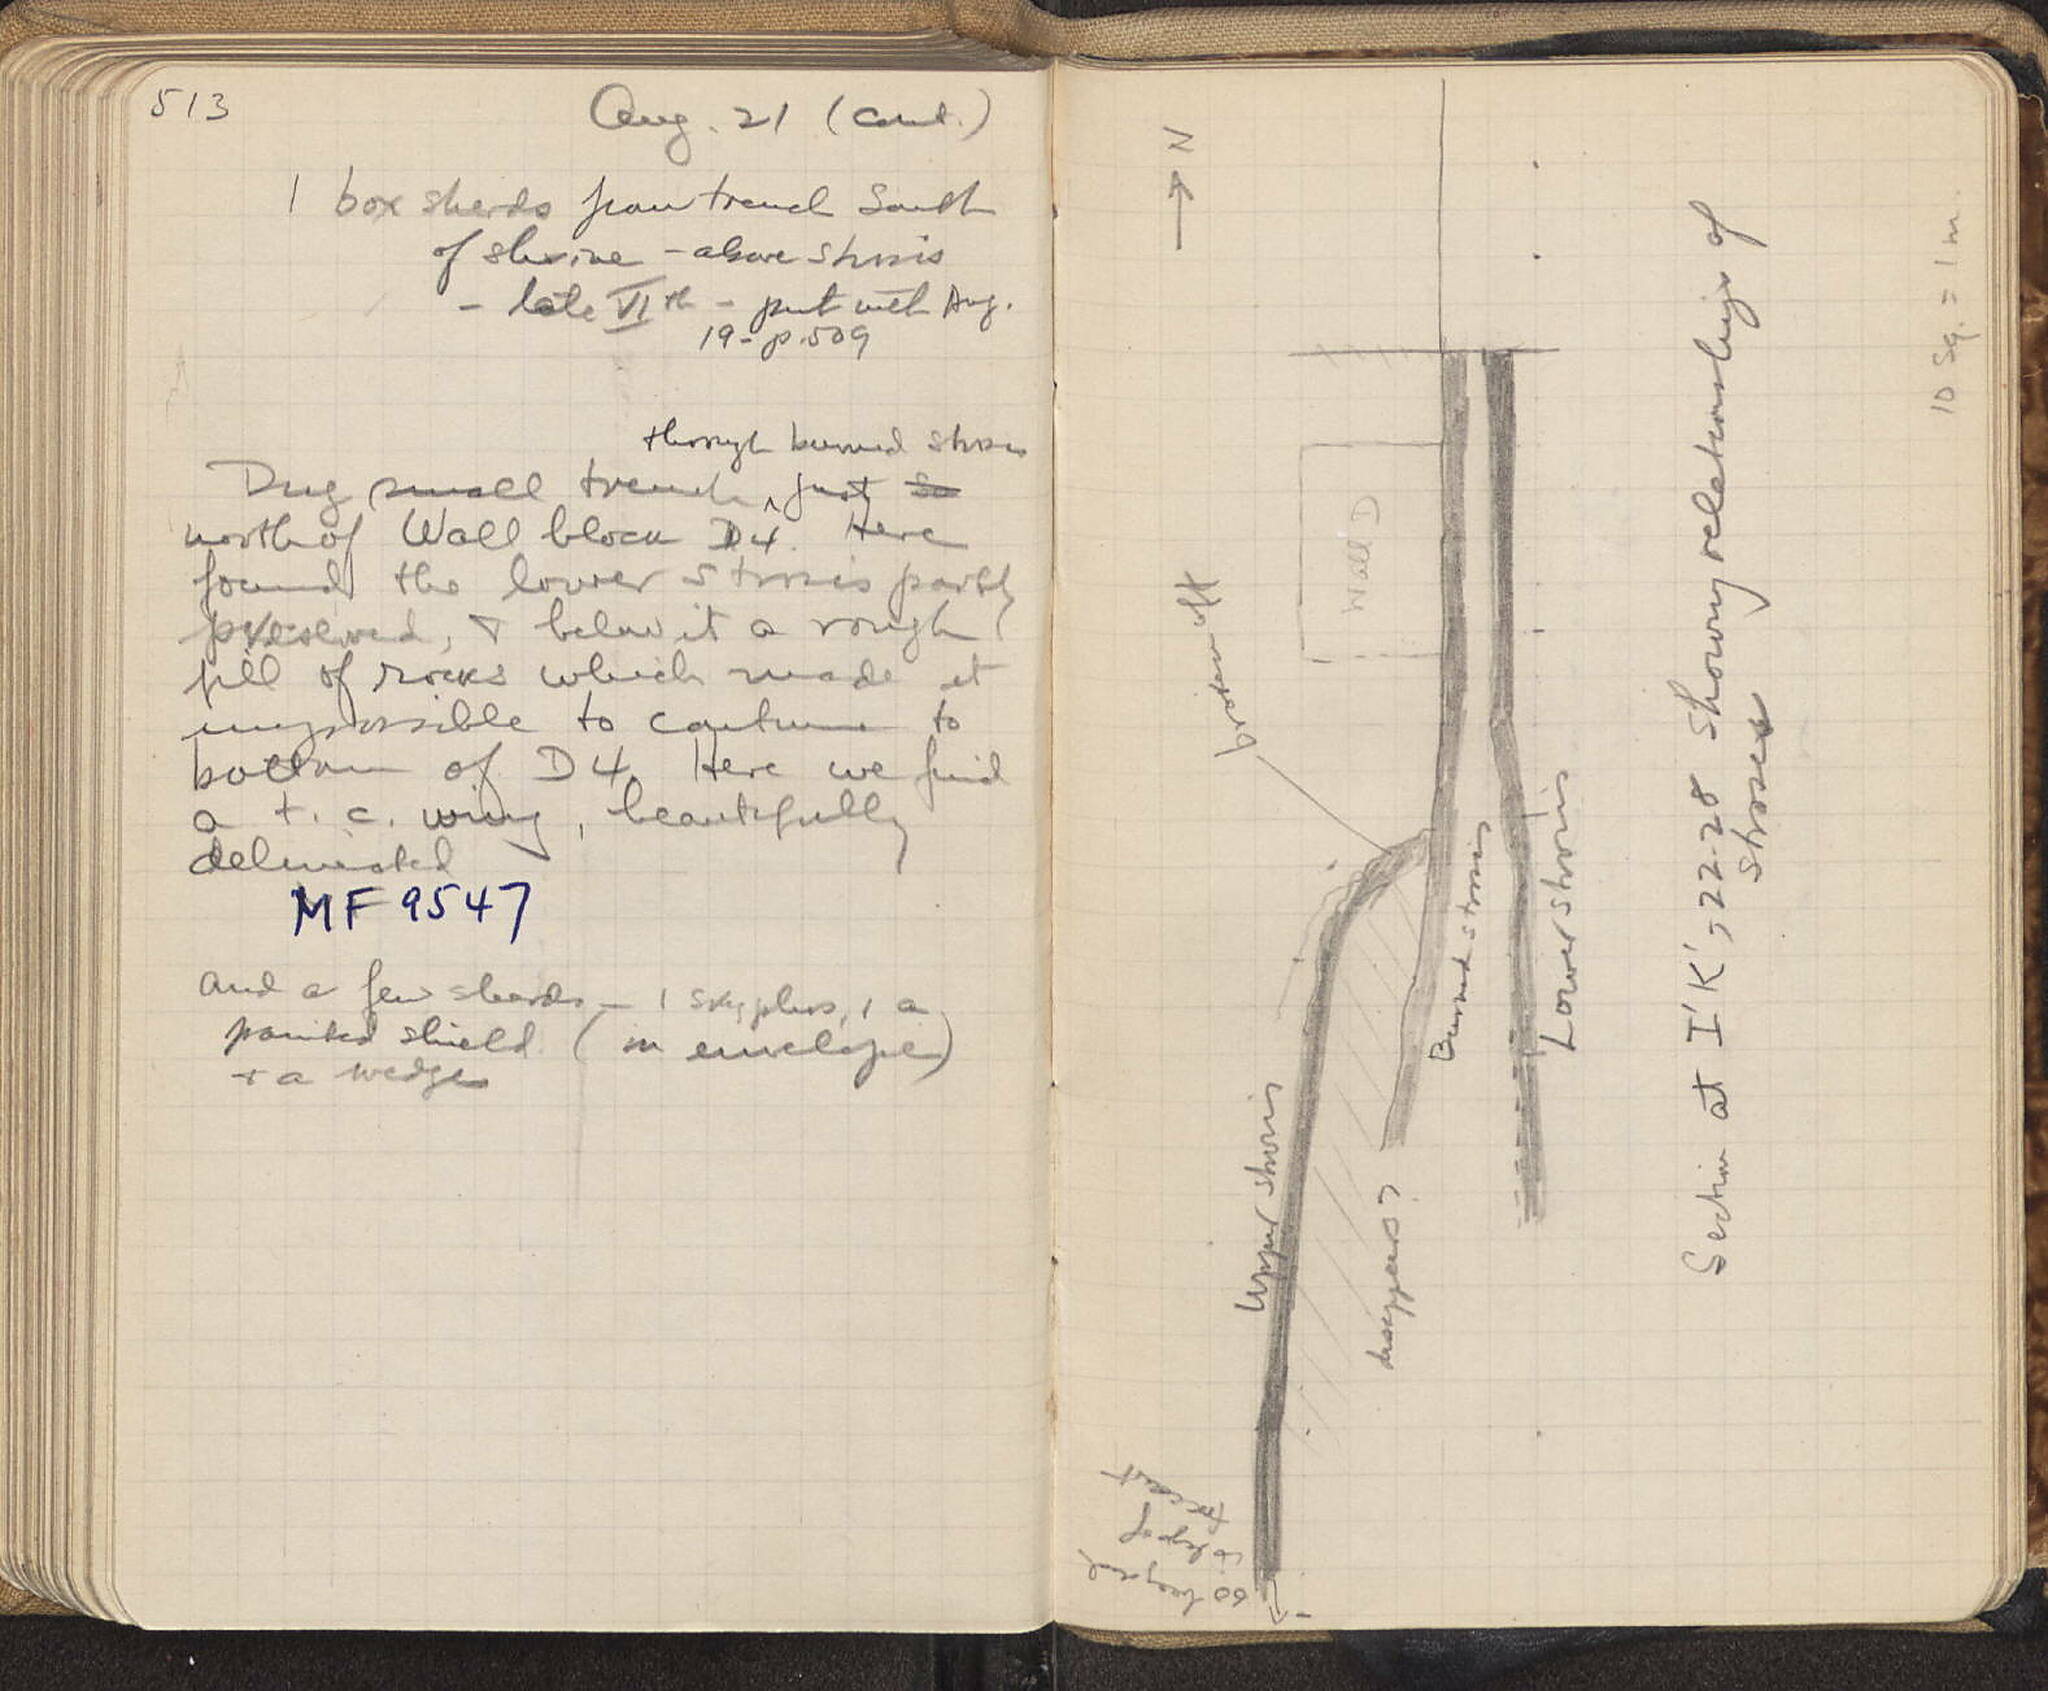 513
Aug. 21 (cont.)
1 box sherds from trench South
of shrine - above strosis
- late VIth - put with Aug.
19 - p. 509
through burned strosis
Dug small trench ^ just So
north of Wall block D4. Here
found the lower strosis partly
preserved, + below it a rough
fill of rocks which made it
impossible to continue to
bottom of D4. Here we find
a t. c. wing, beautifully
delineated
MF 9547
and a few sherds - 1 skyphos, 1 a
painted shield (in envelope)
+ a wedge
N
broken off
Wall D
Upper strosis
disappears?
Burned strosis
Lower strosis
Section at I'K', 22-28 showing relationships of
stroses
10 sq. = 1 m.
to top of